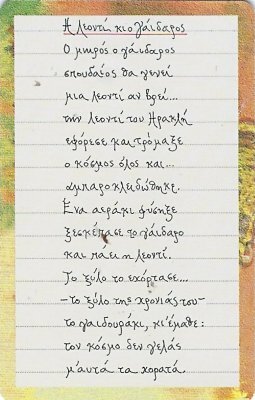 Η λεοντή κι ο γάιδαρος
Ο μικρός ο γάιδαρος
σπουδαίος θα γενεί
μια λεοντή αν βρεί...
την λεοντή του Ηρακλή
εφόρεσε και τρόμαξε
ο κόσμος όλος και...
αμπαροκλειδώθηκε.
Ένα αεράκι φύσηξε
ξεσκέπασε το γάιδαρο
και πάει η λεοντή.
Το ξύλο το εχόρτασε...
-το ξύλο της χρονιάς του-
το γαϊδουράκι, κι' έμαθε:
τον κόσμο δεν γελάς
μ' αυτά τα χορατά.